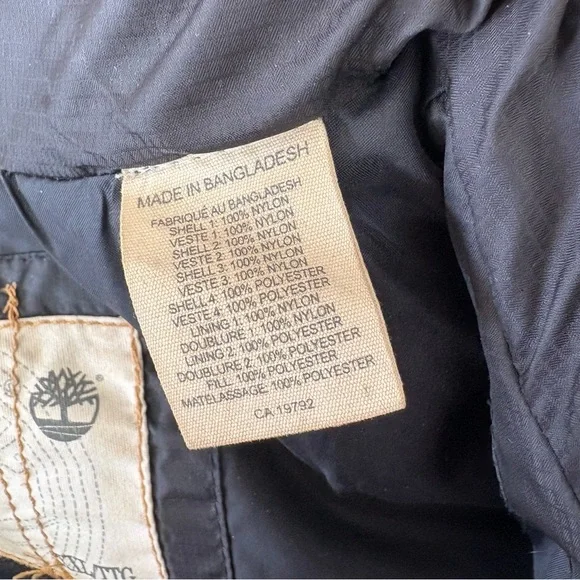 MADE IN BANGLADESH
FABRIQUE AU BANGLADESH
SHELL 1: 100% NYLON
VESTE 1: 100% NYLON
SHELL 2: 100% NYLON
VESTE 2: 100% NYLON
SHELL 3: 100% NYLON
VESTE 3: 100% NYLON
SHELL 4: 100% POLYESTER
VESTE 4: 100% POLYESTER
LINING 1: 100% NYLON
DOUBLURE 1: 100% NYLON
LINING 2: 100% POLYESTER
DOUBLURE 2: 100% POLYESTER
FILL: 100% POLYESTER
MATELASSAGE: 100% POLYESTER
CA 19792